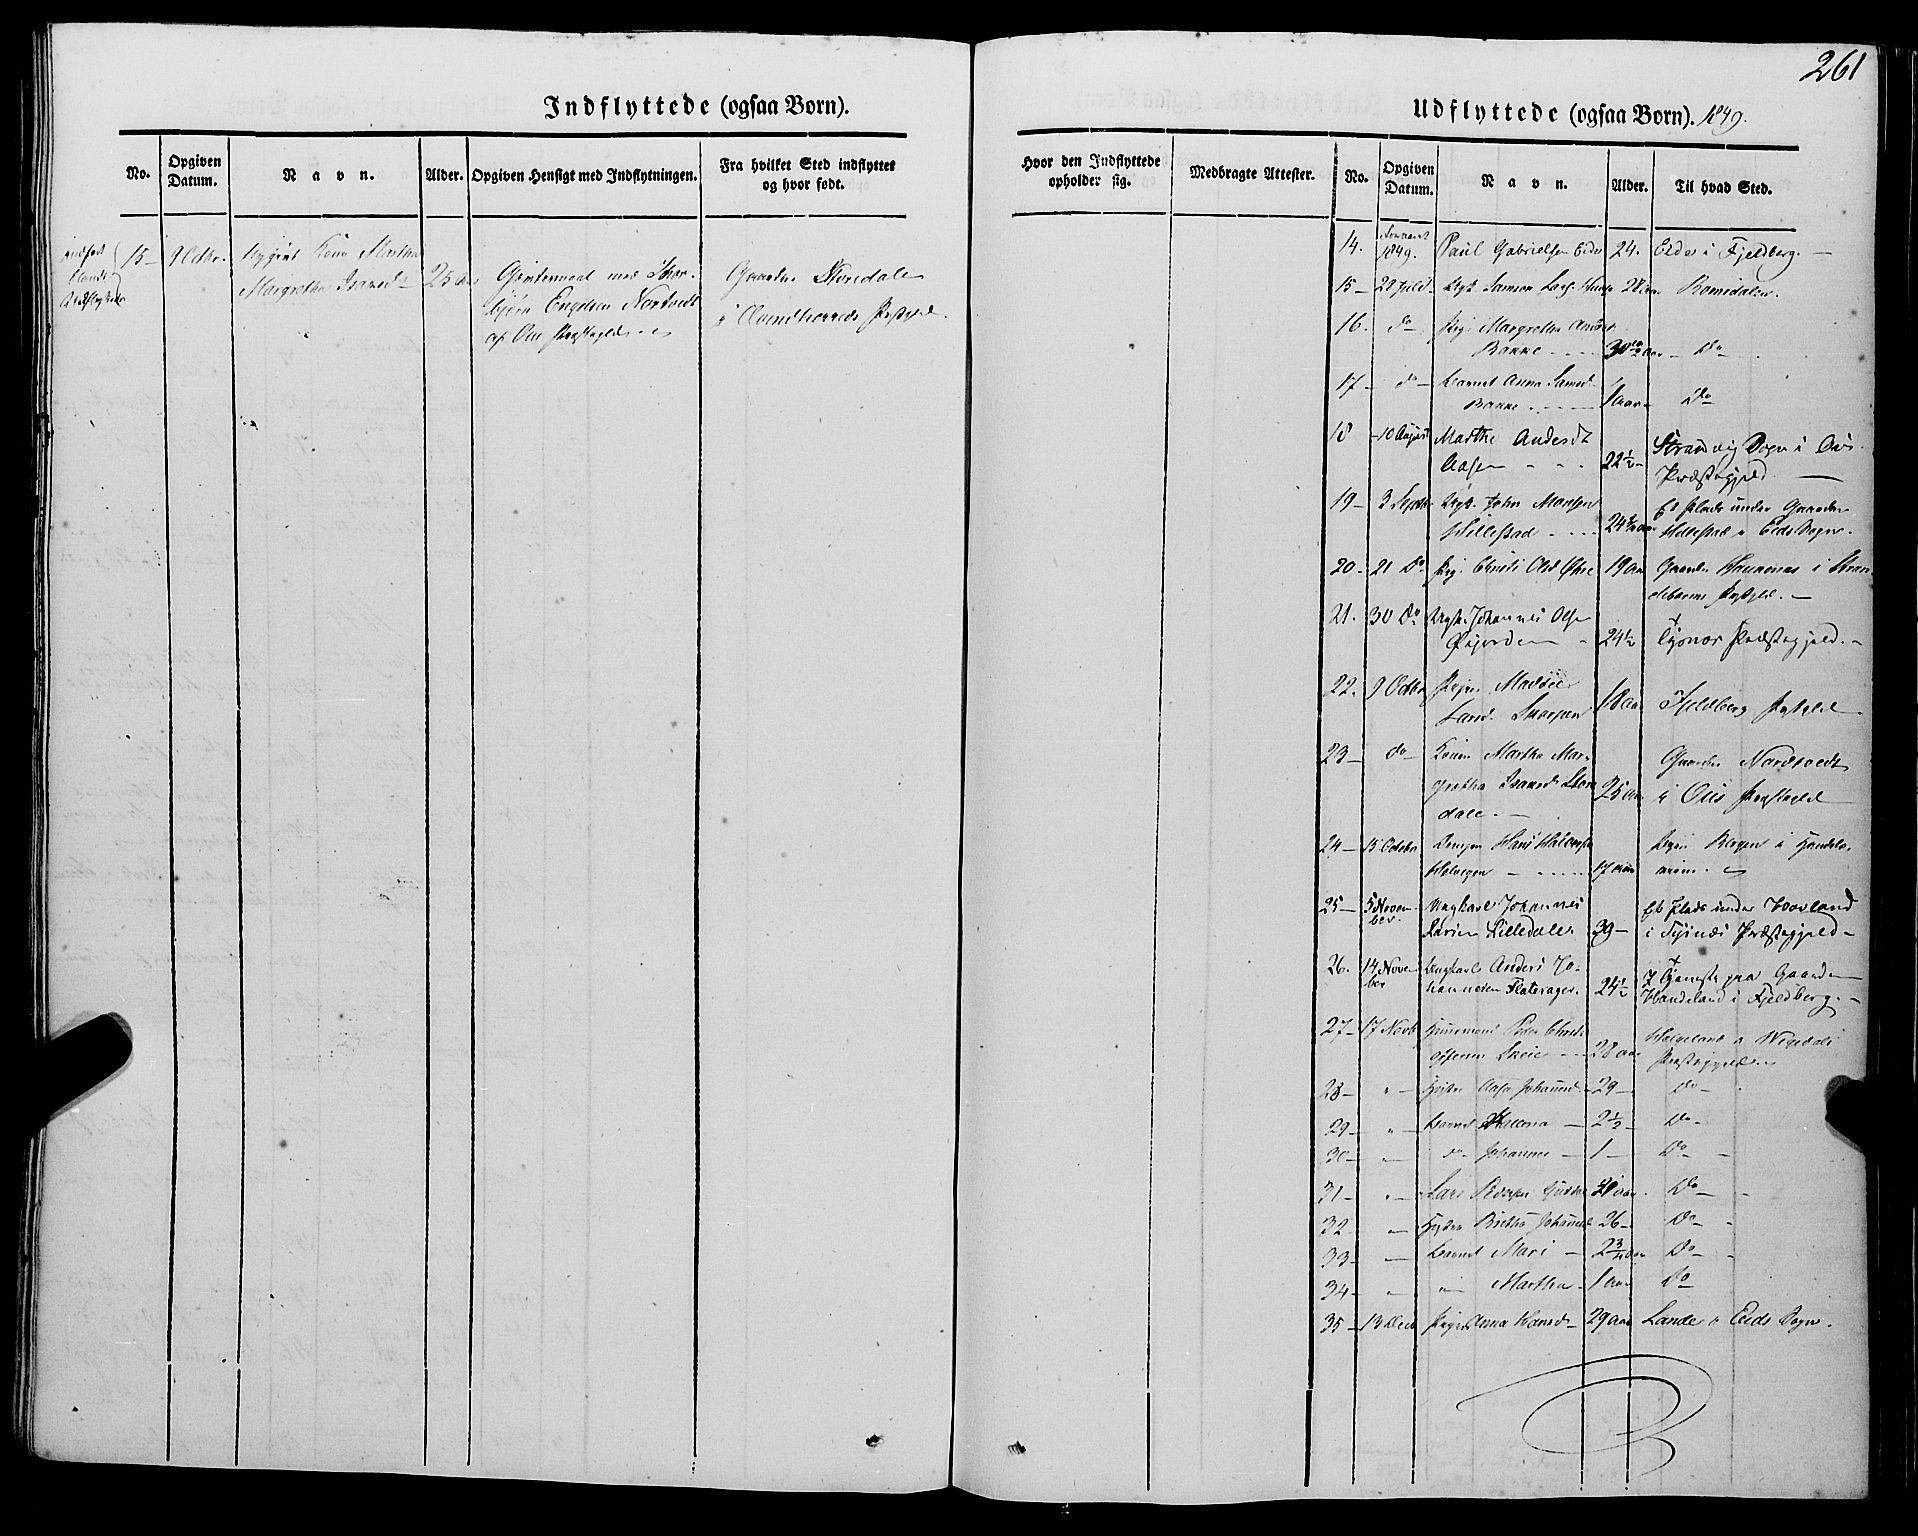 261
Indflyttede (ogsaa Børn).
No.
Opgiven Datum.
Navn.
Alder.
Opgiven Hensigt med Indflytningen.
Fra hvilket Sted indflyttet og hvor født.
15 9 Octbr. Kone Martha
Margretha Isaacsd. 25 aar
Giftermaal med
Engelsen Nortvedt
af Ous Præstegield.
Gaarden Storedale
i Qvindherreds Præstgield.
Udflyttede (ogsaa Børn). 1849.
Hvor den Indflyttede opholder sig.
Medbragte Attester.
No.
Opgiven Datum.
Navn.
Alder.
Til hvad Sted.
14. 1849. Paul Gabrielsen Eide 24. Eide i Fjeldberg.
15 28 Samson 28 aar Romsdalen.
16. do Pig. Margretha
Bakke 30 aar Do
17 do Barnet Anna Samsd.
Bakke 1 aar Do
18 10 August Marthe Andersdt
Aasen 22½ Strandvig Sogn i Ous
Præstegjeld.
19 3 Septbr Ungk. John Monsen
Hillestad 24 aar Et Plads under Gaarden
Hillestad i Eids Sogn.
20 21 Do Pig. Christi Olsd. Øvre 19 aar Gaarden i Stran-
debarms Præstgjeld.
21. 30 Do Ungk. Johannes Olsen
24½ Tysnæs Præstegjeld.
22. 9 Octbr Pigen
Larsd. 18 aar Fjeldberg Præstgjeld
23 do Konen Martha Mar-
gretha Isaacsd. Store-
dale. 25 aar Gaarden Nordtvedt
i Ous Præstegield
24 15 Octobr Drengen Hans
17 aar Byen Bergen i Handels-
25 5 Novem-
ber Ungkarl Johannes
Larsen Lilledale 39 Et Plads under Hovland
i Tysnæs Præstegjeld
26. 14 Novem-
ber Ungkarl Anders Jo-
hannesen Flaterager. 24½ I Tjeneste paa Gaarden
Handeland i Fjeldberg.
27 17 Novb Huusmand Peder Christ-
offersen Skeie 28 aar Helgeland i Vigedals
Præstegjeld
28 " Hustru Johannesd. 29 do
29 " Barnet Helena 2½ Do
30 do Johannes 1 Do
31 " Lars Pedersen aar. Do
32 Hustru Britha Johannesd 26 Do
33 Barnet Mari 2¾ aar Do
34 " Martha 1 aar Do
35 13 Decb Pigen Anna Hansd 29 aar Lande i Eids Sogn.